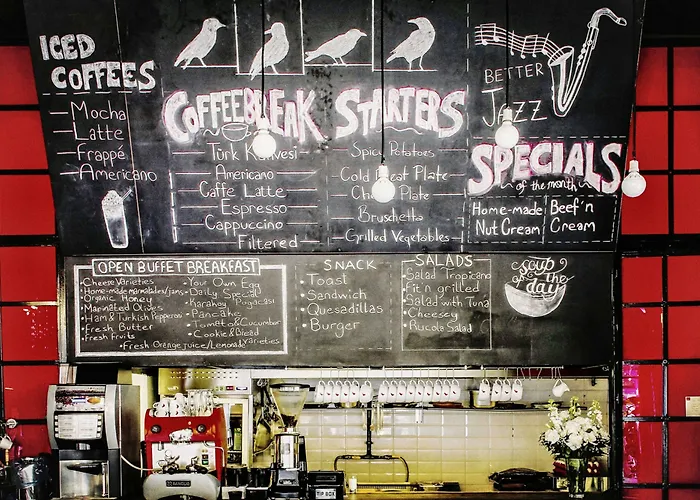 ICED
COFFEES
Mocha
Latte
Frappé
Americano
COFFEEBREAK
Türk Kahvesi
Americano
Caffe Latte
Espresso
Cappuccino
Filtered
STARTERS
Spicy Potatoes
Cold Meat Plate
Plate
Bruschetta
Grilled Vegetables
BETTER
JAZZ
SPECIALS
of the month
Home-made
Nut Cream
Beef'n
Cream
OPEN BUFFET BREAKFAST
Cheese Varieties
Home-made marmalades/jams
Organic Honey
Marinated Olives
Ham & Turkish Pepperoni
Fresh Butter
Fresh Fruits
Your Own Egg
Daily Special
Karaköy Pogacasi
Pancake
Tomato & Cucumber
Cookie & Bread
varieties
Fresh Orange juice/Lemonade
SNACK
Toast
Sandwich
Quesadillas
Burger
SALADS
Salad Tropicano
Fit'n grilled
Salad with Tuna
Cheesey
Rucola Salad
Soup
OF THE
day
TIP BOX